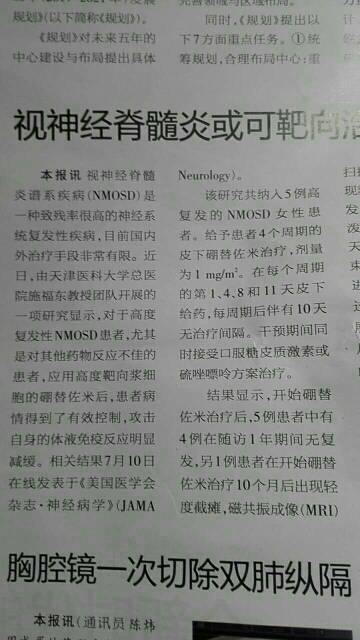 规划》(以下简称《规划》)。
《规划》对未来五年的
中心建设与布局提出具体
同时,《规划》提出以
下7方面重点任务。①统
筹规划,合理布局中心:重
视神经脊髓炎或可靶向治
本报讯 视神经脊髓
炎谱系疾病(NMOSD)是
一种致残率很高的神经系
统复发性疾病,目前国内
外治疗手段非常有限。近
日,由天津医科大学总医
院施福东教授团队开展的
一项研究显示,对于高度
复发性NMOSD患者,尤其
是对其他药物反应不佳的
患者,应用高度靶向浆细
胞的硼替佐米后,患者病
情得到了有效控制,攻击
自身的体液免疫反应明显
减缓。相关结果7月10日
在线发表于《美国医学会
杂志·神经病学》(JAMA
Neurology)。
该研究共纳入5例高
复发的NMOSD女性患
者。给予患者4个周期的
皮下硼替佐米治疗,剂量
为1 mg/m²。在每个周期
的第1、4、8和11天皮下
给药,每周期后伴有10天
无治疗间隔。干预期间同
时接受口服糖皮质激素或
硫唑嘌呤方案治疗。
结果显示,开始硼替
佐米治疗后,5例患者中有
4例在随访1年期间无复
发,另1例患者在开始硼替
佐米治疗10个月后出现轻
度截瘫,磁共振成像(MRI)
胸腔镜一次切除双肺纵隔
本报讯(通讯员 陈炜